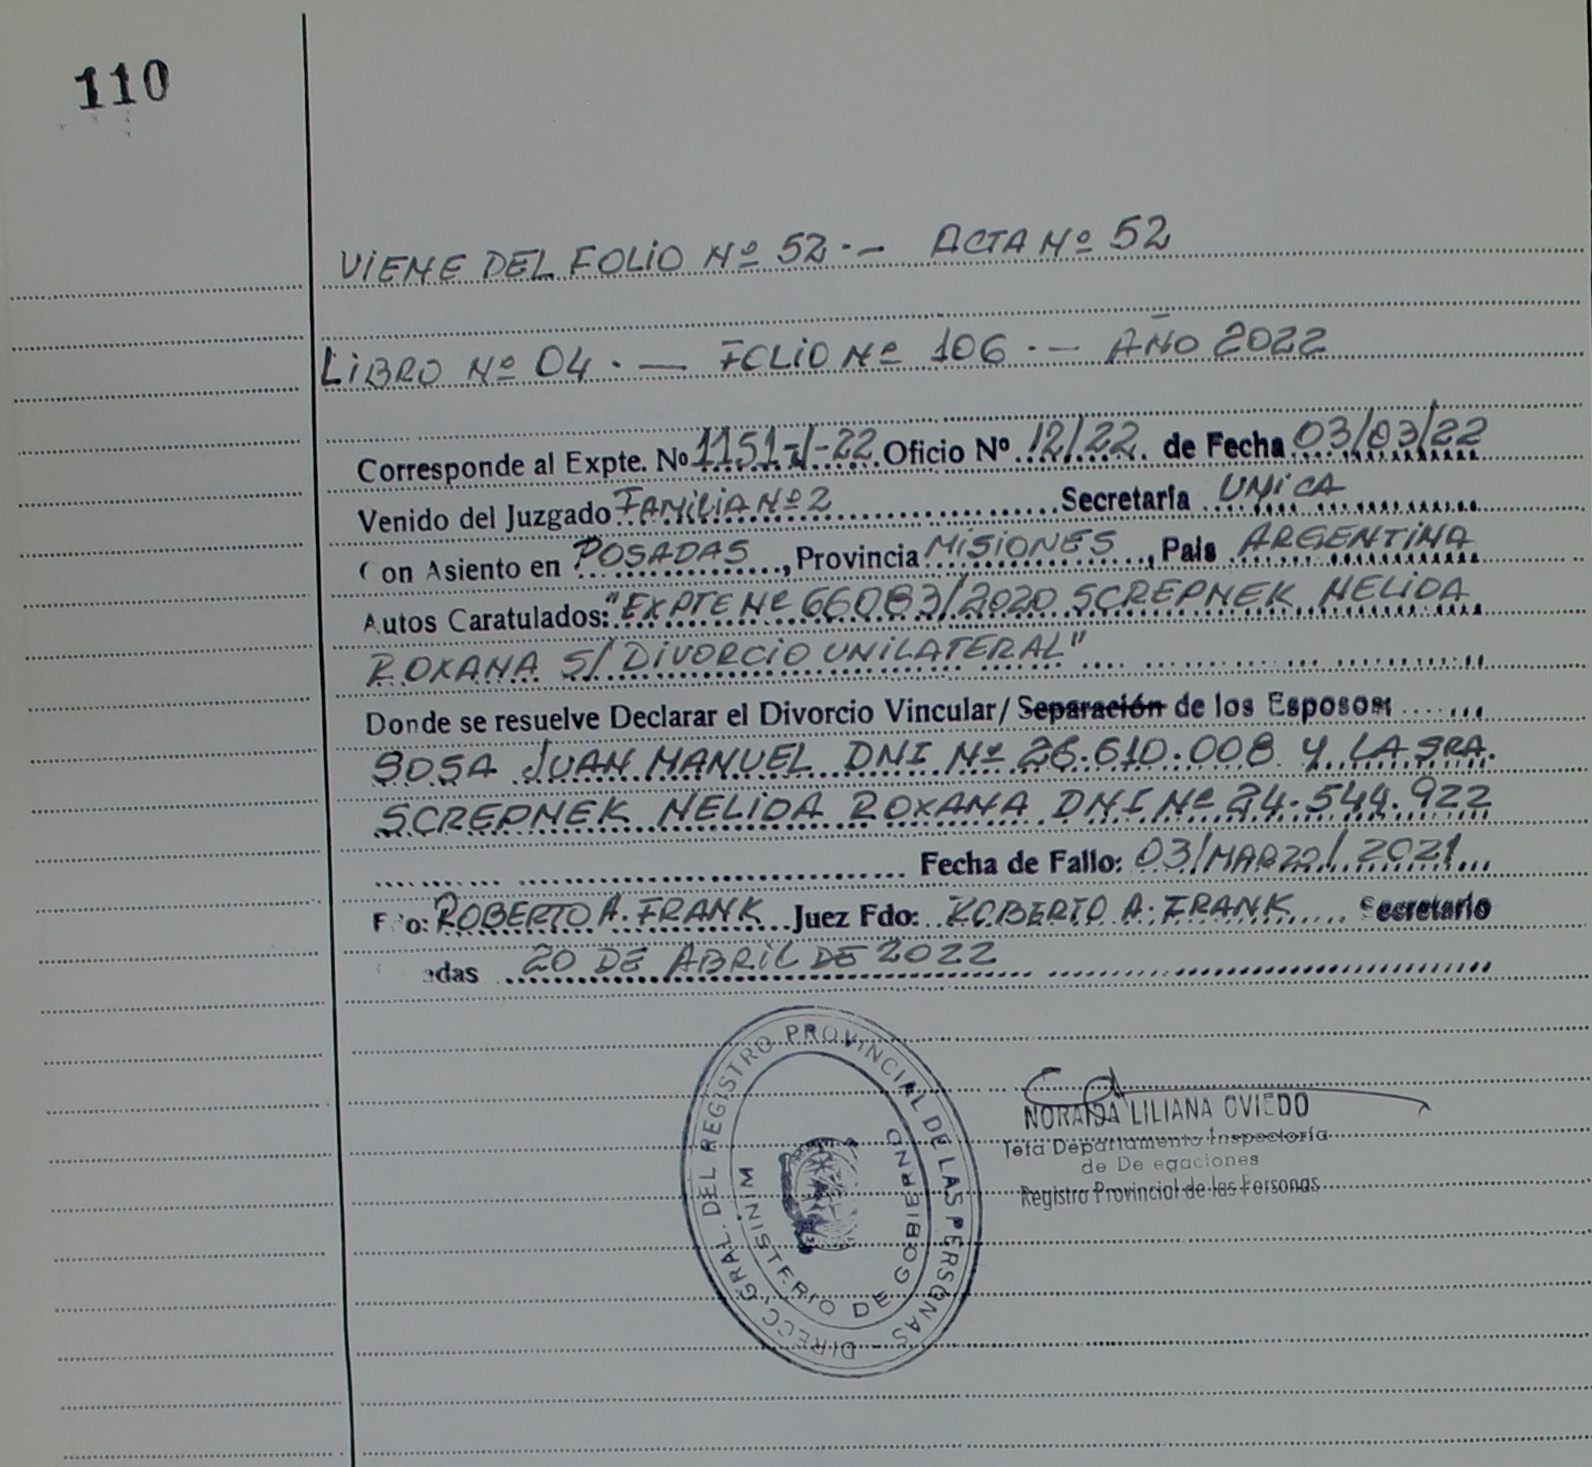 110
VIENE DEL FOLIO Nº 52.- ACTA Nº 52
LIBRO Nº 04.- FOLIO Nº 106.- AÑO 2022
Corresponde al Expte. Nº 1151-I-22 Oficio Nº 12/22 de Fecha 03/03/22
Venido del Juzgado FAMILIA Nº 2 Secretaría UNICA
Con Asiento en POSADAS, Provincia MISIONES, País ARGENTINA
Autos Caratulados: "EXPTE Nº 66083/2020 SCREPNEK NELIDA
ROXANA S/ DIVORCIO UNILATERAL"
Donde se resuelve Declarar el Divorcio Vincular/ Separación de los Esposos:
SOSA JUAN MANUEL DNI Nº 26.610.008 Y LA SRA.
SCREPNEK NELIDA ROXANA DNI Nº 24.544.922
Fecha de Fallo: 03/MARZO/2021
F o: ROBERTO A. FRANK Juez Fdo: ROBERTO A. FRANK Secretario
adas 20 DE ABRIL DE 2022
DIRECC. GRAL. DEL REGISTRO PROVINCIAL DE LAS PERSONAS
MINISTERIO DE GOBIERNO
NORAIDA LILIANA OVIEDO
Jefa Departamento Inspectoría
de De egaciones
Registro Provincial de las Personas